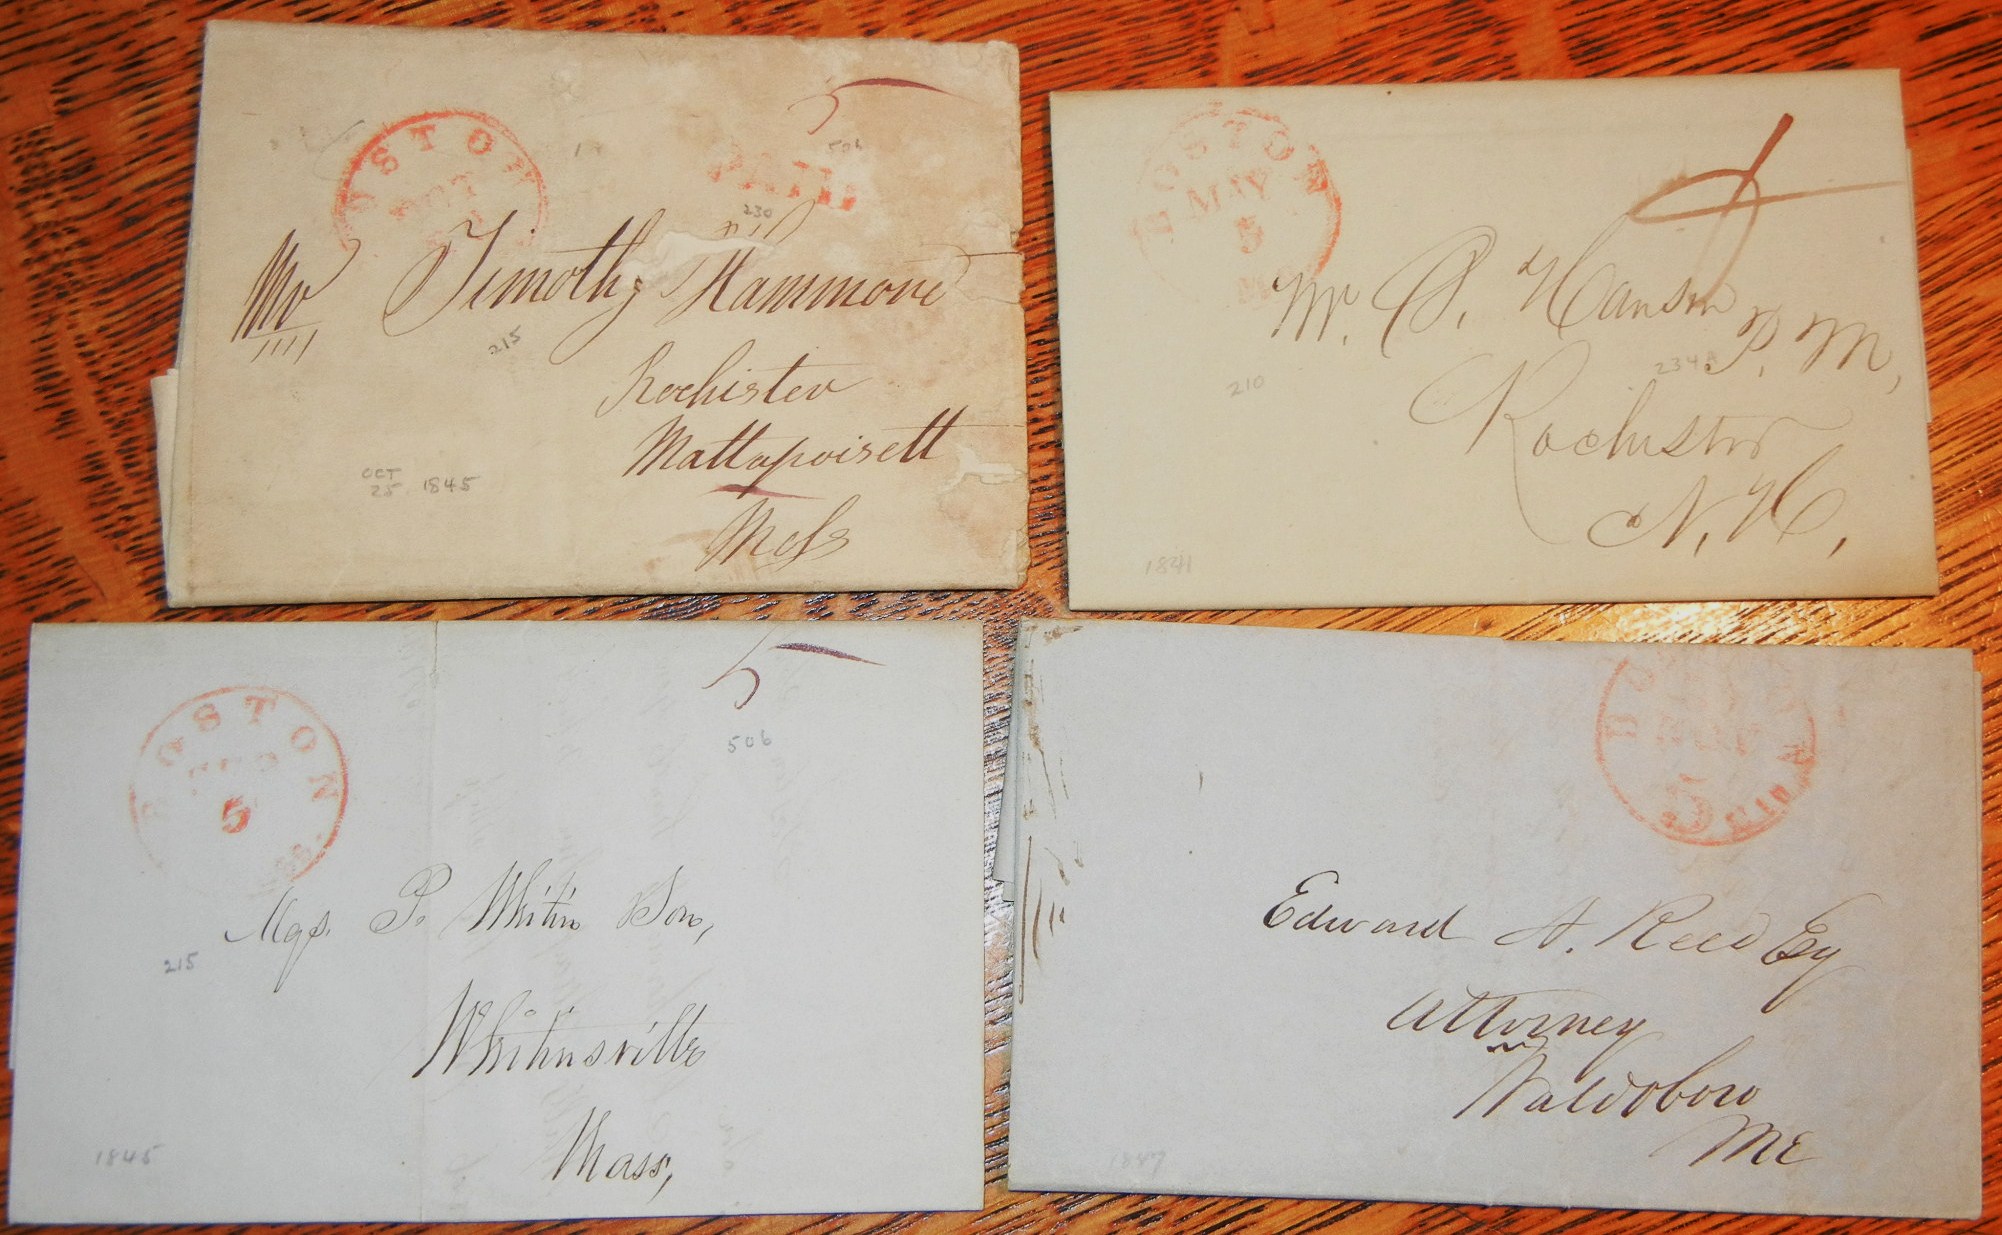 5
BOSTON
OCT
PAID
506
230
Mr Timothy Hammond
215
Rochister
Mattapoisett
Mass
OCT
25 1845
BOSTON
MAY
5
Mr. S. Hanson P. M,
234
210
Rochester
N, H,
1841
5
BOSTON
5
506
P. Whitin & Son,
215
Whitinsville
Mass,
1845
BOSTON
5
Edward A. Reed Esq
Attorney
Waldoboro
Me
1847